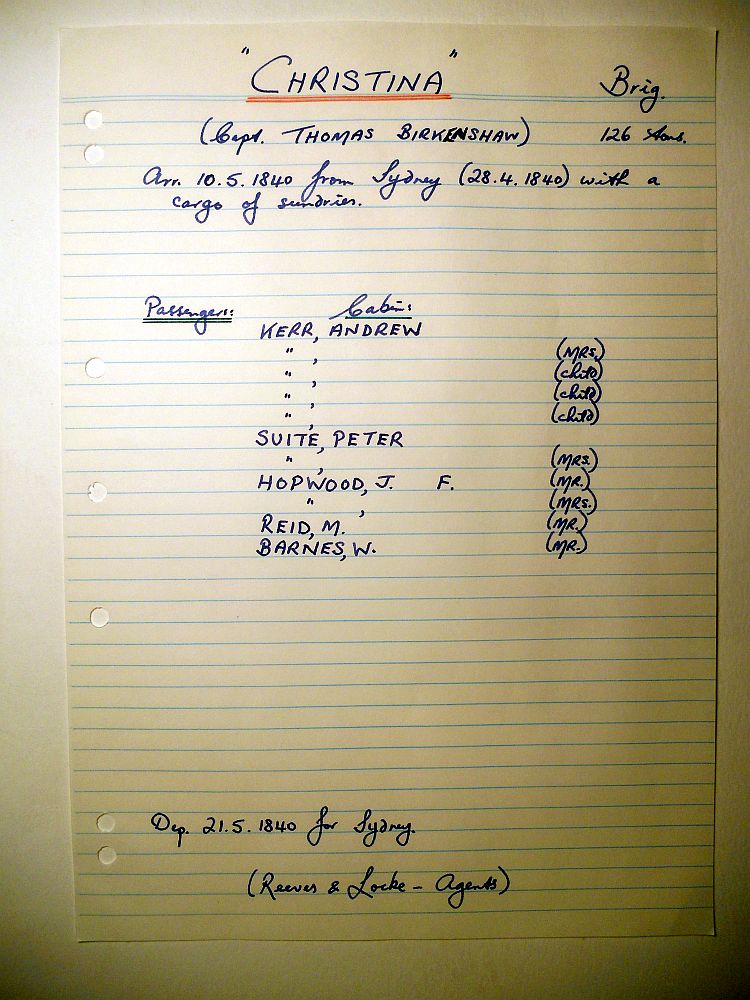 "CHRISTINA" Brig.
(Capt. THOMAS BIRKENSHAW) 126 tons.
Arr. 10.5.1840 from Sydney (28.4.1840) with a
cargo of sundries.
Passengers: Cabin:
KERR, ANDREW
" , (MRS.)
" , (child)
" , (child)
" , (child)
SUITE, PETER
" , (MRS.)
HOPWOOD, J. F. (MR.)
" , (MRS.)
REID, M. (MR.)
BARNES, W. (MR.)
Dep. 21.5.1840 for Sydney.
(Reeves & Locke - Agents)